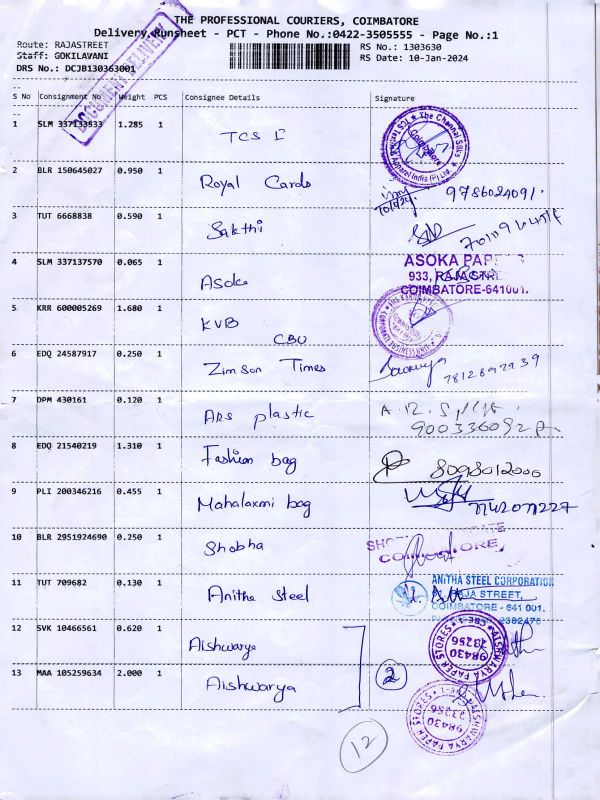 THE PROFESSIONAL COURIERS, COIMBATORE
Delivery Runsheet - PCT - Phone No.:0422-3505555 - Page No.:1
Route: RAJASTREET
Staff: GOKILAVANI
DRS No.: DCJB130363001
RS No.: 1303630
RS Date: 10-Jan-2024
DOCUMENT DELIVERY
S No Consignment No Weight PCS Consignee Details Signature
1 SLM 337133533 1.285 1 TCS I
The Chennai Silks
Apparel India (P) Ltd.
Coimbatore
2 BLR 150645027 0.950 1 Royal Cards 9786024091.
10/1/24
3 TUT 6668838 0.590 1 Sakthi
4 SLM 337137570 0.065 1 Asoka
ASOKA
933, RAJA STRE
COIMBATORE-641001.
5 KRR 600005269 1.680 1 KVB
CBU
6 EDQ 24587917 0.250 1 Zimson Times
7 DPM 430161 0.120 1 ARS plastic
8 EDQ 21540219 1.310 1 Fashion bag 8098012000
9 PLI 200346216 0.455 1 Mahalaxmi bag
10 BLR 2951924690 0.250 1 Shobha
11 TUT 709682 0.130 1 Anitha Steel
ANITHA STEEL CORPORATION
RAJA STREET,
COIMBATORE - 641 001.
12 SVK 10466561 0.620 1 Aishwarya
AISHWARYA PAPER STORES
CBE-1
98430
23256
13 MAA 105259634 2.000 1 Aishwarya
2
AISHWARYA PAPER STORES
CBE-1
98430
23256
12